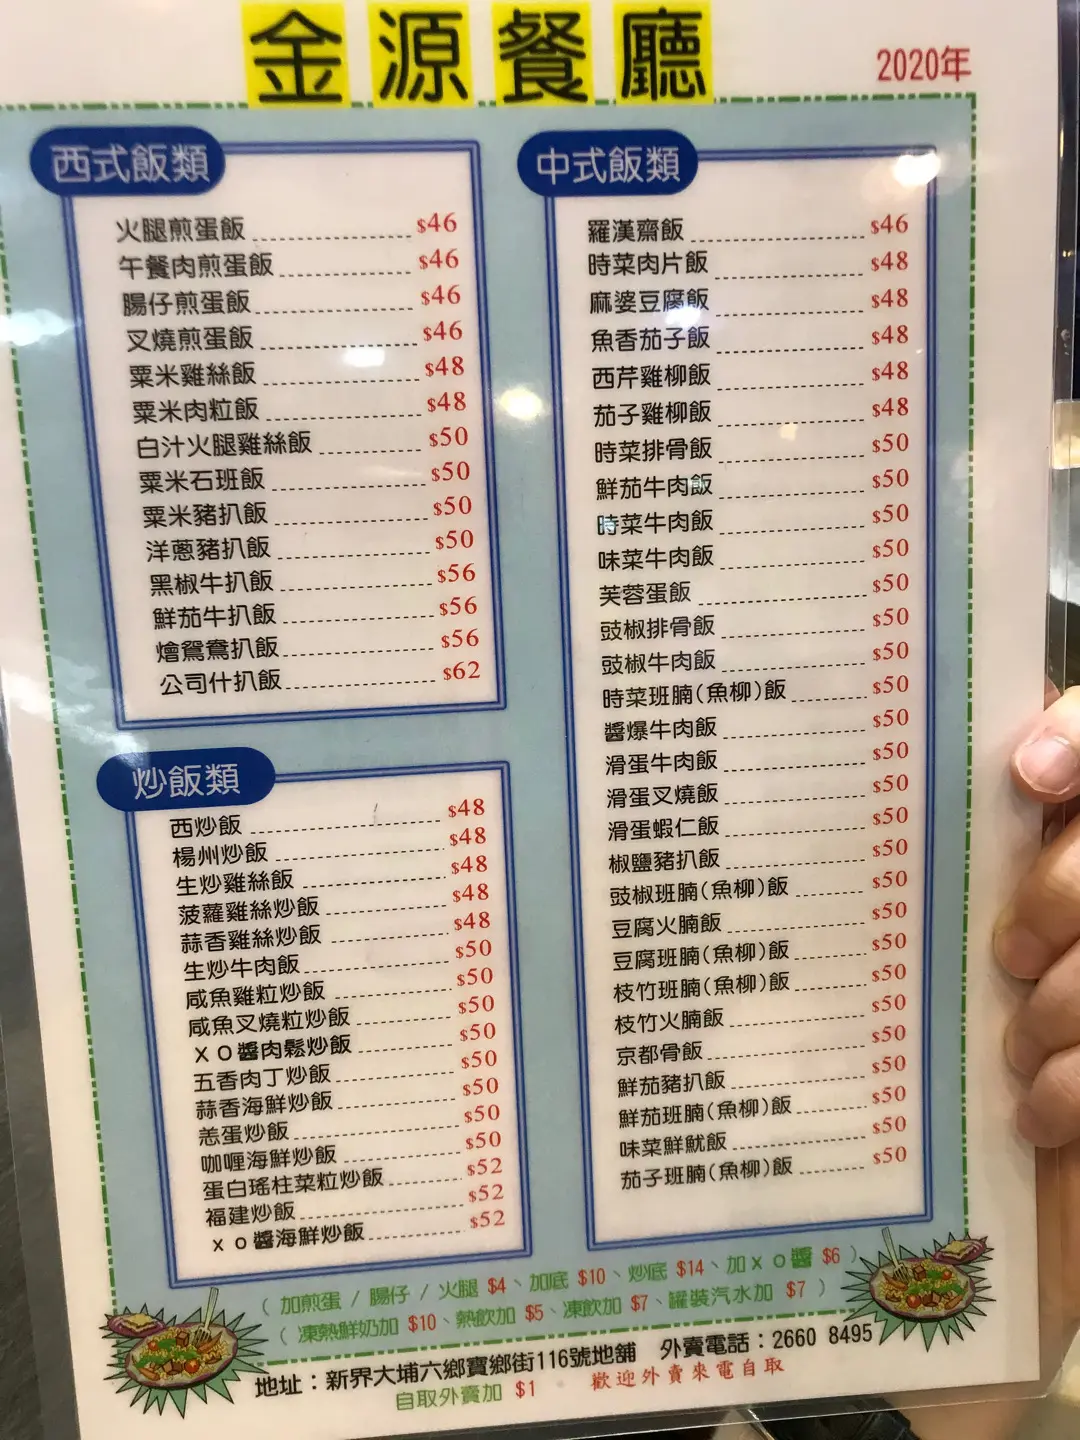 金源餐廳
2020年
西式飯類
火腿煎蛋飯 $46
午餐肉煎蛋飯 $46
腸仔煎蛋飯 $46
叉燒煎蛋飯 $46
粟米雞絲飯 $48
粟米肉粒飯 $48
白汁火腿雞絲飯 $50
粟米石班飯 $50
粟米豬扒飯 $50
洋蔥豬扒飯 $50
黑椒牛扒飯 $56
鮮茄牛扒飯 $56
燴鴛鴦扒飯 $56
公司什扒飯 $62
炒飯類
西炒飯 $48
楊州炒飯 $48
生炒雞絲飯 $48
菠蘿雞絲炒飯 $48
蒜香雞絲炒飯 $48
生炒牛肉飯 $50
咸魚雞粒炒飯 $50
咸魚叉燒粒炒飯 $50
XO醬肉鬆炒飯 $50
五香肉丁炒飯 $50
蒜香海鮮炒飯 $50
恙蛋炒飯 $50
咖喱海鮮炒飯 $50
蛋白瑤柱菜粒炒飯 $52
福建炒飯 $52
xo醬海鮮炒飯 $52
中式飯類
羅漢齋飯 $46
時菜肉片飯 $48
麻婆豆腐飯 $48
魚香茄子飯 $48
西芹雞柳飯 $48
茄子雞柳飯 $48
時菜排骨飯 $50
鮮茄牛肉飯 $50
時菜牛肉飯 $50
味菜牛肉飯 $50
芙蓉蛋飯 $50
豉椒排骨飯 $50
豉椒牛肉飯 $50
時菜班腩(魚柳)飯 $50
醬爆牛肉飯 $50
滑蛋牛肉飯 $50
滑蛋叉燒飯 $50
滑蛋蝦仁飯 $50
椒鹽豬扒飯 $50
豉椒班腩(魚柳)飯 $50
豆腐火腩飯 $50
豆腐班腩(魚柳)飯 $50
枝竹班腩(魚柳)飯 $50
枝竹火腩飯 $50
京都骨飯 $50
鮮茄豬扒飯 $50
鮮茄班腩(魚柳)飯 $50
味菜鮮魷飯 $50
茄子班腩(魚柳)飯 $50
(加煎蛋/腸仔/火腿 $4、加底 $10、炒底 $14、加xo醬 $6)
(凍熱鮮奶加 $10、熱飲加 $5、凍飲加 $7、罐裝汽水加 $7)
地址：新界大埔六鄉寶鄉街116號地舖 外賣電話：2660 8495
自取外賣加 $1 · 歡迎外賣來電自取